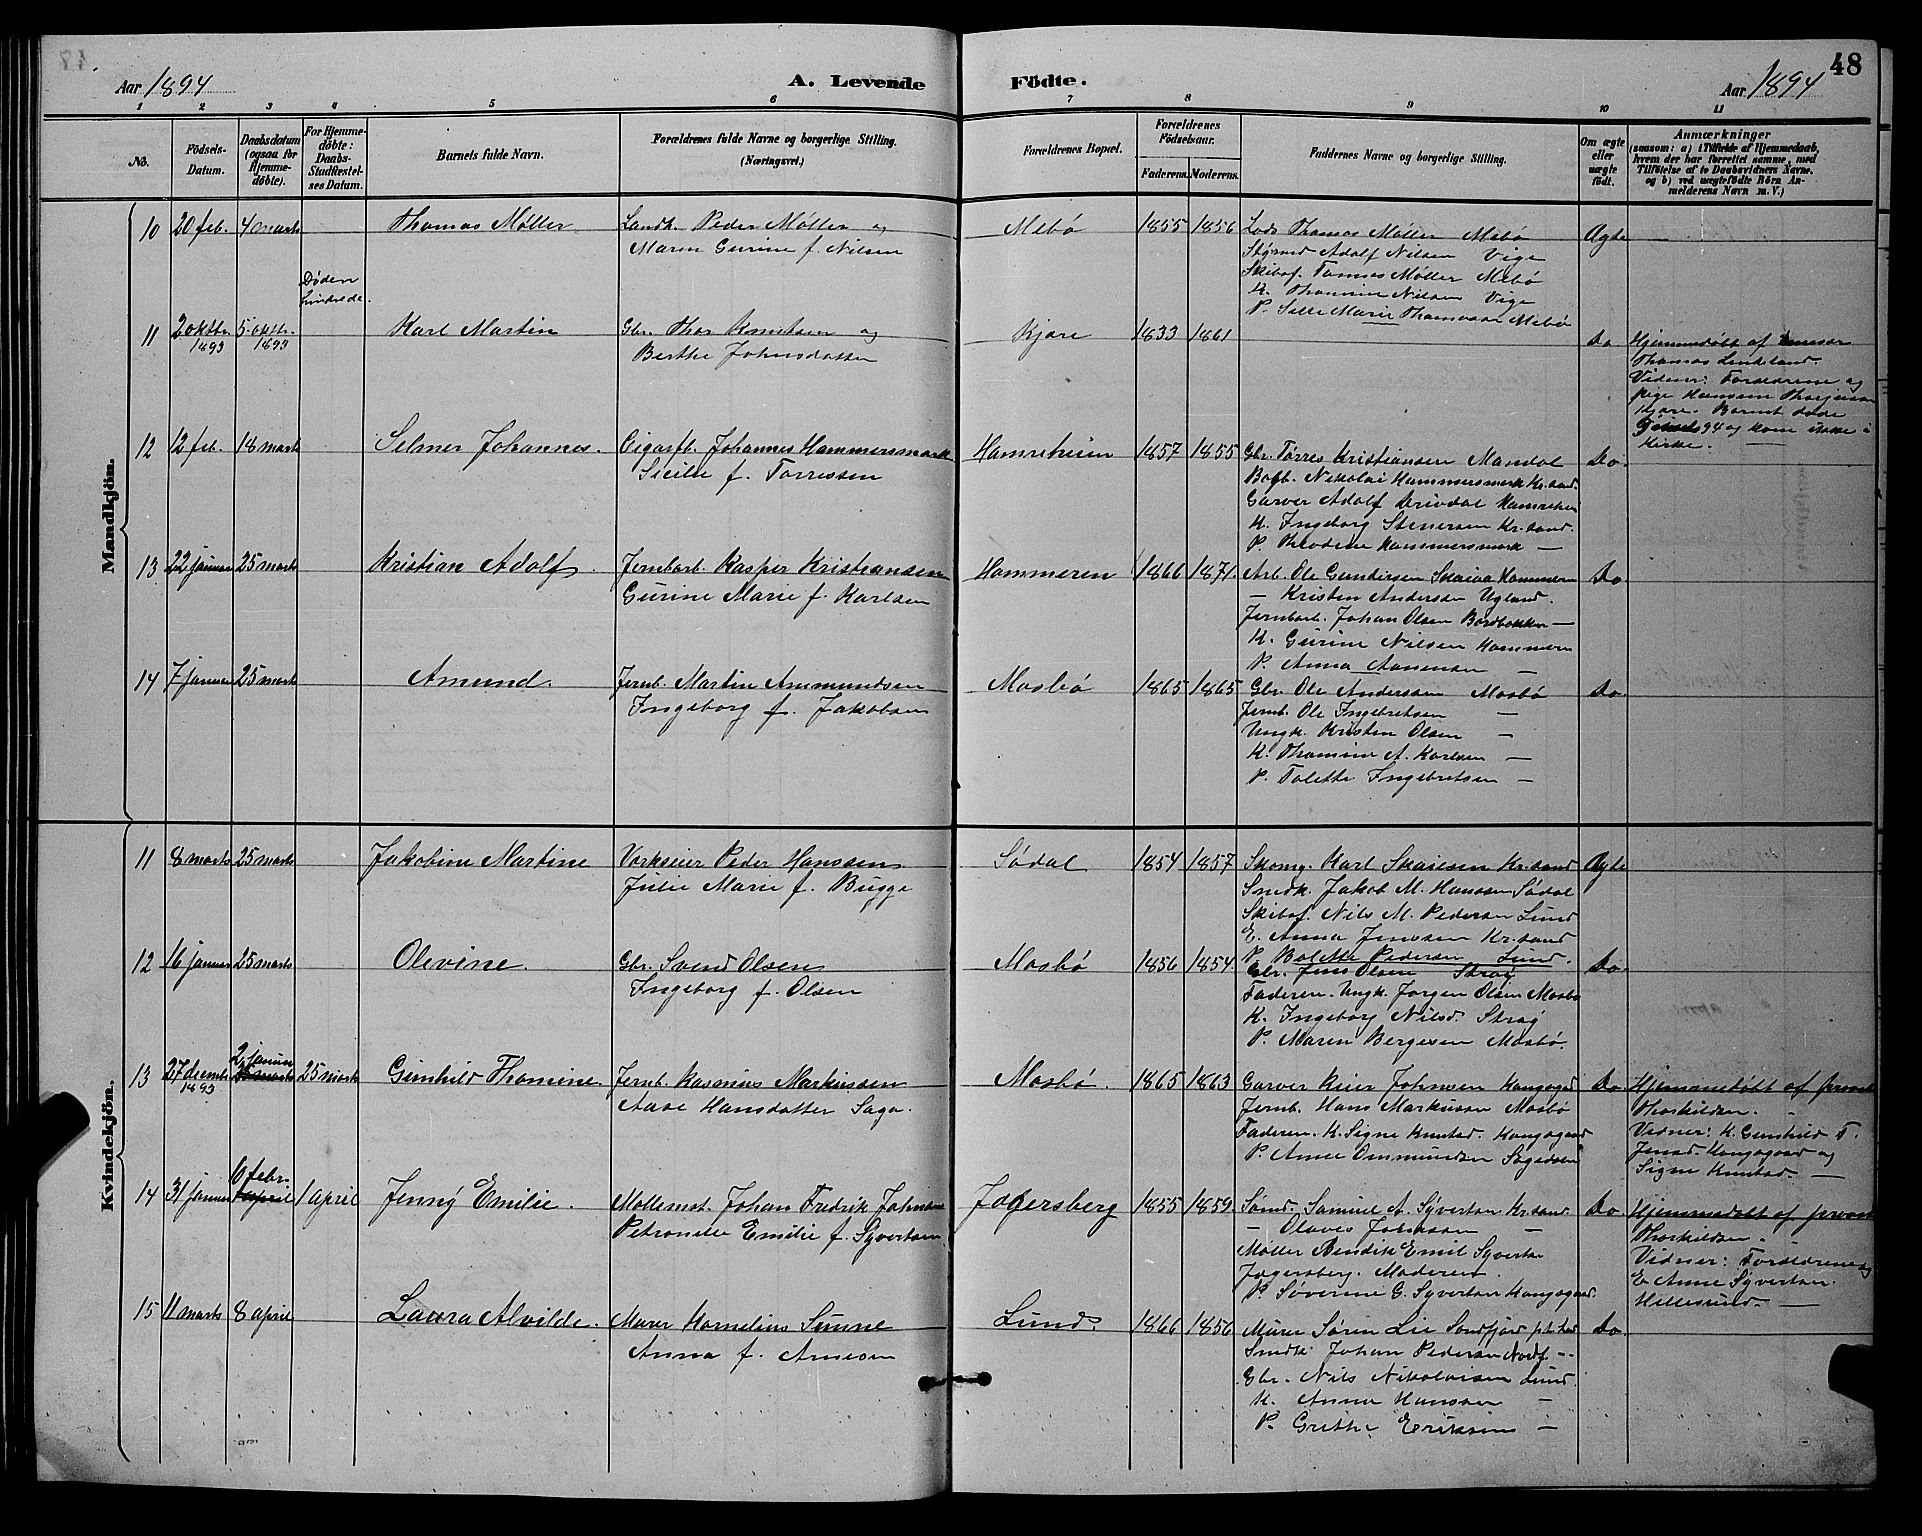 48
Aar 1894
A. Levende Födte.
Aar 1894
1 2 3 4 5 6 7 8 9 10 11
No.
Födsels-Datum.
Daabsdatum (ogsaa for Hjemme-döbte).
For Hjemme-döbte: Daabs-Stadfæstel-ses Datum.
Barnets fulde Navn.
Forældrenes fulde Navne og borgerlige Stilling. (Næringsvei.)
Forældrenes Bopæl.
Forældrenes Födselsaar.
Faderens. Moderens.
Faddernes Navne og borgerlige Stilling.
Om ægte eller uægte födt.
Anmærkninger
(saasom: a) i Tilfælde af Hjemmedaab, hvem der har forrettet samme, med Tilföielse af to Daabsvidners Navne, og b) ved uægtefödte Börn An-melderens Navn m. V.)
Mandkjön.
10 20 feb. 4 marts Thomas Møller
Landh. Peder Møller og
Maren Gurine f. Nilsen
Mebø 1855 1856
Lods Thomas Møller Mebø
Styrmd Adolf Nilsen Vige
Skibsf. Tomas Møller Mebø
K. Thomine Nilsen Vige
P. Sille Marie Thomassen Mebø
Ægte
Døden
hindrede.
11 2 oktbr. 1893 5 oktbr. 1893 Karl Martin
Gbr. Thor Knutsen og
Berthe Johnsdatter
Kjære 1833 1861
Do
Hjemmedøbt af
Thomas Lindeland.
Vidner: Forældrene og
pige
Kjære. Barnet døde
94 og kom ikke i
Kirke.
12 12 feb. 18 marts Selmer Johannes.
Cigarfb. Johannes Hammersmark
Sicille f. Torressen
Hamreheien 1857 1855
Gbr. Torres Kristiansen Mandal
Bogb. Nikolai Hammersmark Kr.sand.
Garver Adolf Drivdal Hamreheien
K. Ingeborg Stenersen Kr.sand.
P. Theodine Hammersmark —
Do.
13 22 januar 25 marts Kristian Adolf.
Jernbarb. Kasper Kristiansen
Gurine Marie f. Karlsen
Hammeren 1866 1871.
Arb. Ole Gundersen Skaiaa Hammeren
— Kristen Andersen Ugland.
Jernbarb. Johan Olsen Bordbakken —
K. Gurine Nilsen Hammeren
P. Anna Aanensen —
Do
14 7 januar 25 marts Amund.
Jernb. Martin Ammundsen
Ingeborg f. Jakobsen
Mosbø 1865 1865
Gbr. Ole Andersen Mosbø
Jernb. Ole Ingebretsen —
Ungk. Kristen Olsen —
K. Thomine A. Karlsen —
P. Tolette Ingebretsen —
Do.
Kvindekjön.
11 8 marts 25 marts Jakobine Martine
Vorkseier Peder Hanssen
Julie Marie f. Bugge
Sødal 1854 1857
Skomg. Karl Skailsen Kr.sand
Snedk. Jakob M. Hanssen Sødal
Skibsf. Nils M. Pedersen Lund
E. Anna Jenssen Kr.sand
P. Bolette Pedersen Lund.
Ægte
12 16 januar 25 marts Olevine.
Gbr. Svend Olsen
Ingeborg f. Olsen
Mosbø 1856 1854
Gbr. Jens Olsen Stray
Faderen. Ungk. Jørgen Olsen Mosbø
K. Ingeborg Nilsd. Stray
P. Maren Bergesen Mosbø.
Do.
13 27 decembr 1893 2 januar 25 marts 25 marts Gunhild Thomine.
Jernb. Rasmus Markussen
Aase Hansdatter Saga.
Mosbø. 1865 1863
Garver Reier Johnsen Kongsgaard
Jernb. Hans Markussen Mosbø
Faderen. K. Signe Knutsd. Kongsgaard
P. Anne Ommundsen Sagedalen
Do.
Hjemmedøbt af provst
Thorkildsen.
Vidner: K. Gunhild T.
Jensd. Kongsgaard og
Signe Knutsd. —
14 31 januar 6 febr. 1 april 1 april Jenny Emilie.
Møllemst. Johan Fredrik Johnsen
Petronelle Emilie f. Syvertsen
Jægersberg 1855 1859.
Sømd. Samuel A. Syvertsen Kr.sand
— Olaves Johnsen —
Møller Bendik Emil Syvertsen
Jægersberg. Moderen.
P. Søverine G. Syvertsen Kongsgaard.
Do.
Hjemmedøbt af provst
Thorkildsen.
Vidner: Forældrene og
E. Anne Syvertsen
Hellesund. —
15 11 marts 8 april Laura Alvilde.
Murer Kornelius Sunne
Anna f. Arnesen
Lund. 1866 1856
Murer Søren Lie Sondfjord
Snedk. Johan Pedersen Nordf. --
Gbr. Nils Nikolaisen Lund.
K. Anna Hanssen —
P. Grethe Eriksen —
Do.